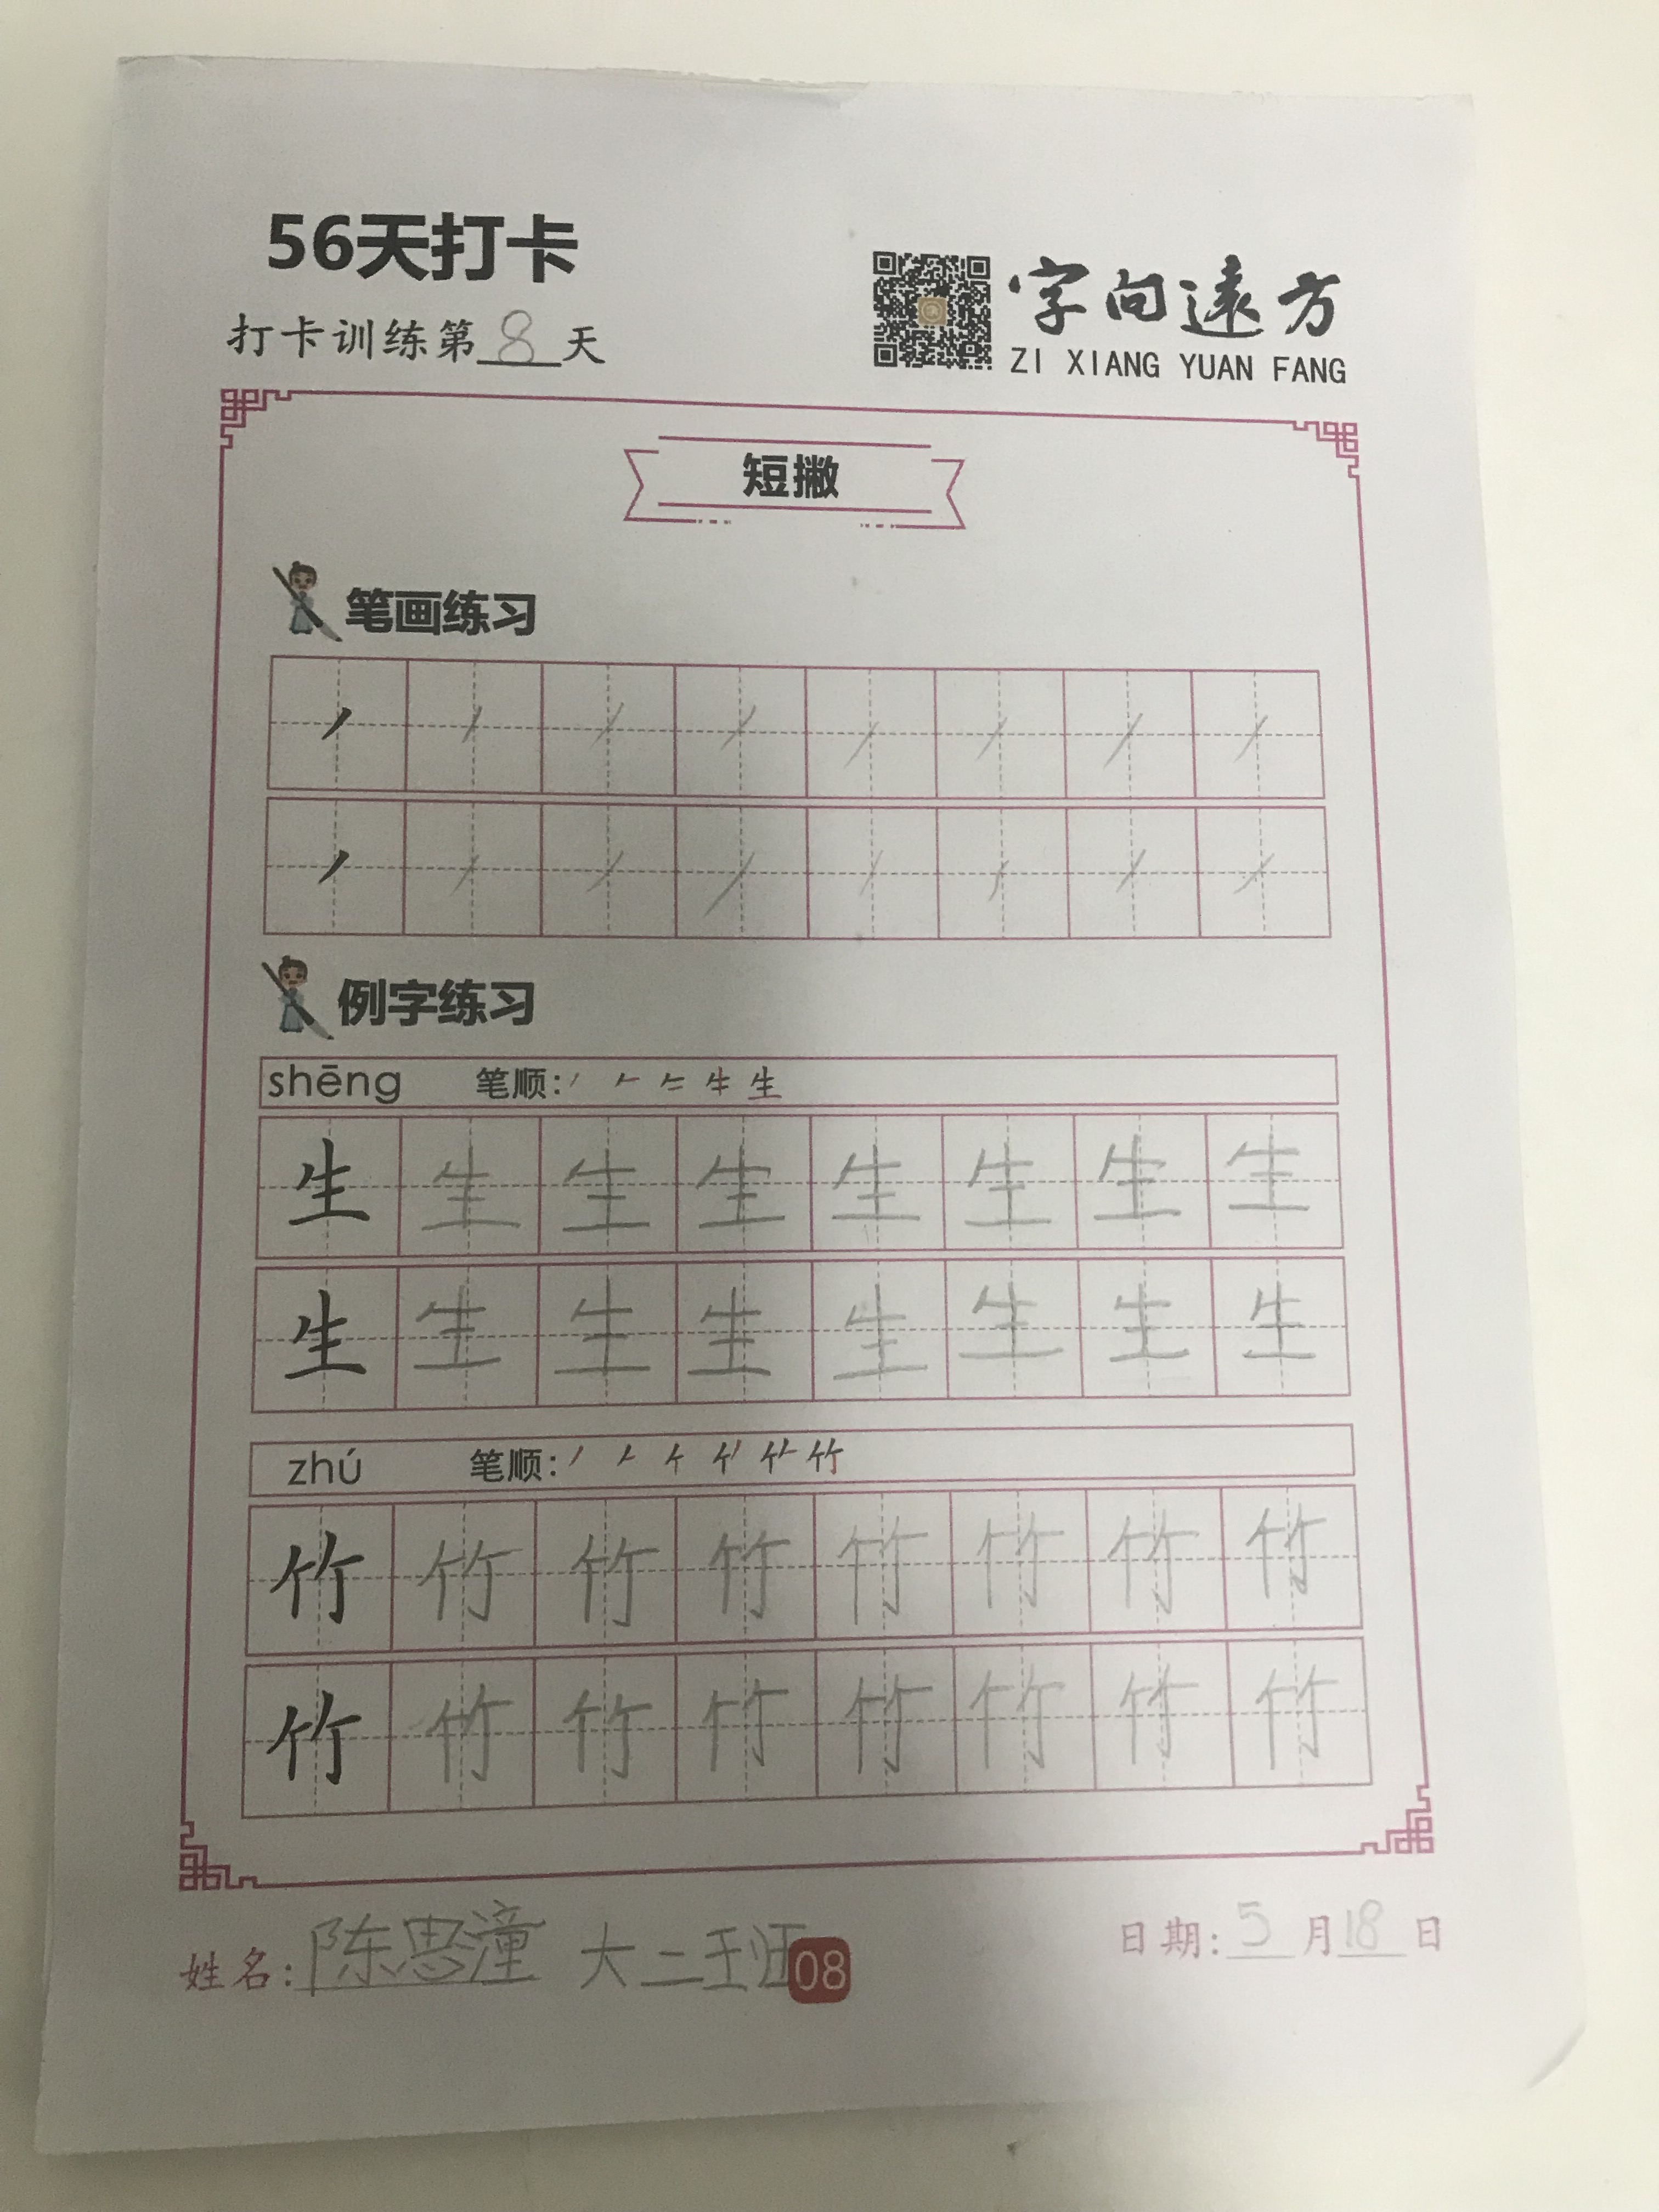 56天打卡
打卡训练第8天
字向遠方
ZI XIANG YUAN FANG
短撇
笔画练习
丿 丿 丿 丿 丿 丿 丿 丿
丿 丿 丿 丿 丿 丿 丿 丿
例字练习
shēng 笔顺: 生
生 生 生 生 生 生 生 生
生 生 生 生 生 生 生 生
zhú 笔顺: 竹
竹 竹 竹 竹 竹 竹 竹 竹
竹 竹 竹 竹 竹 竹 竹 竹
姓名: 陈思潼 大二班 08 日期: 5月18日